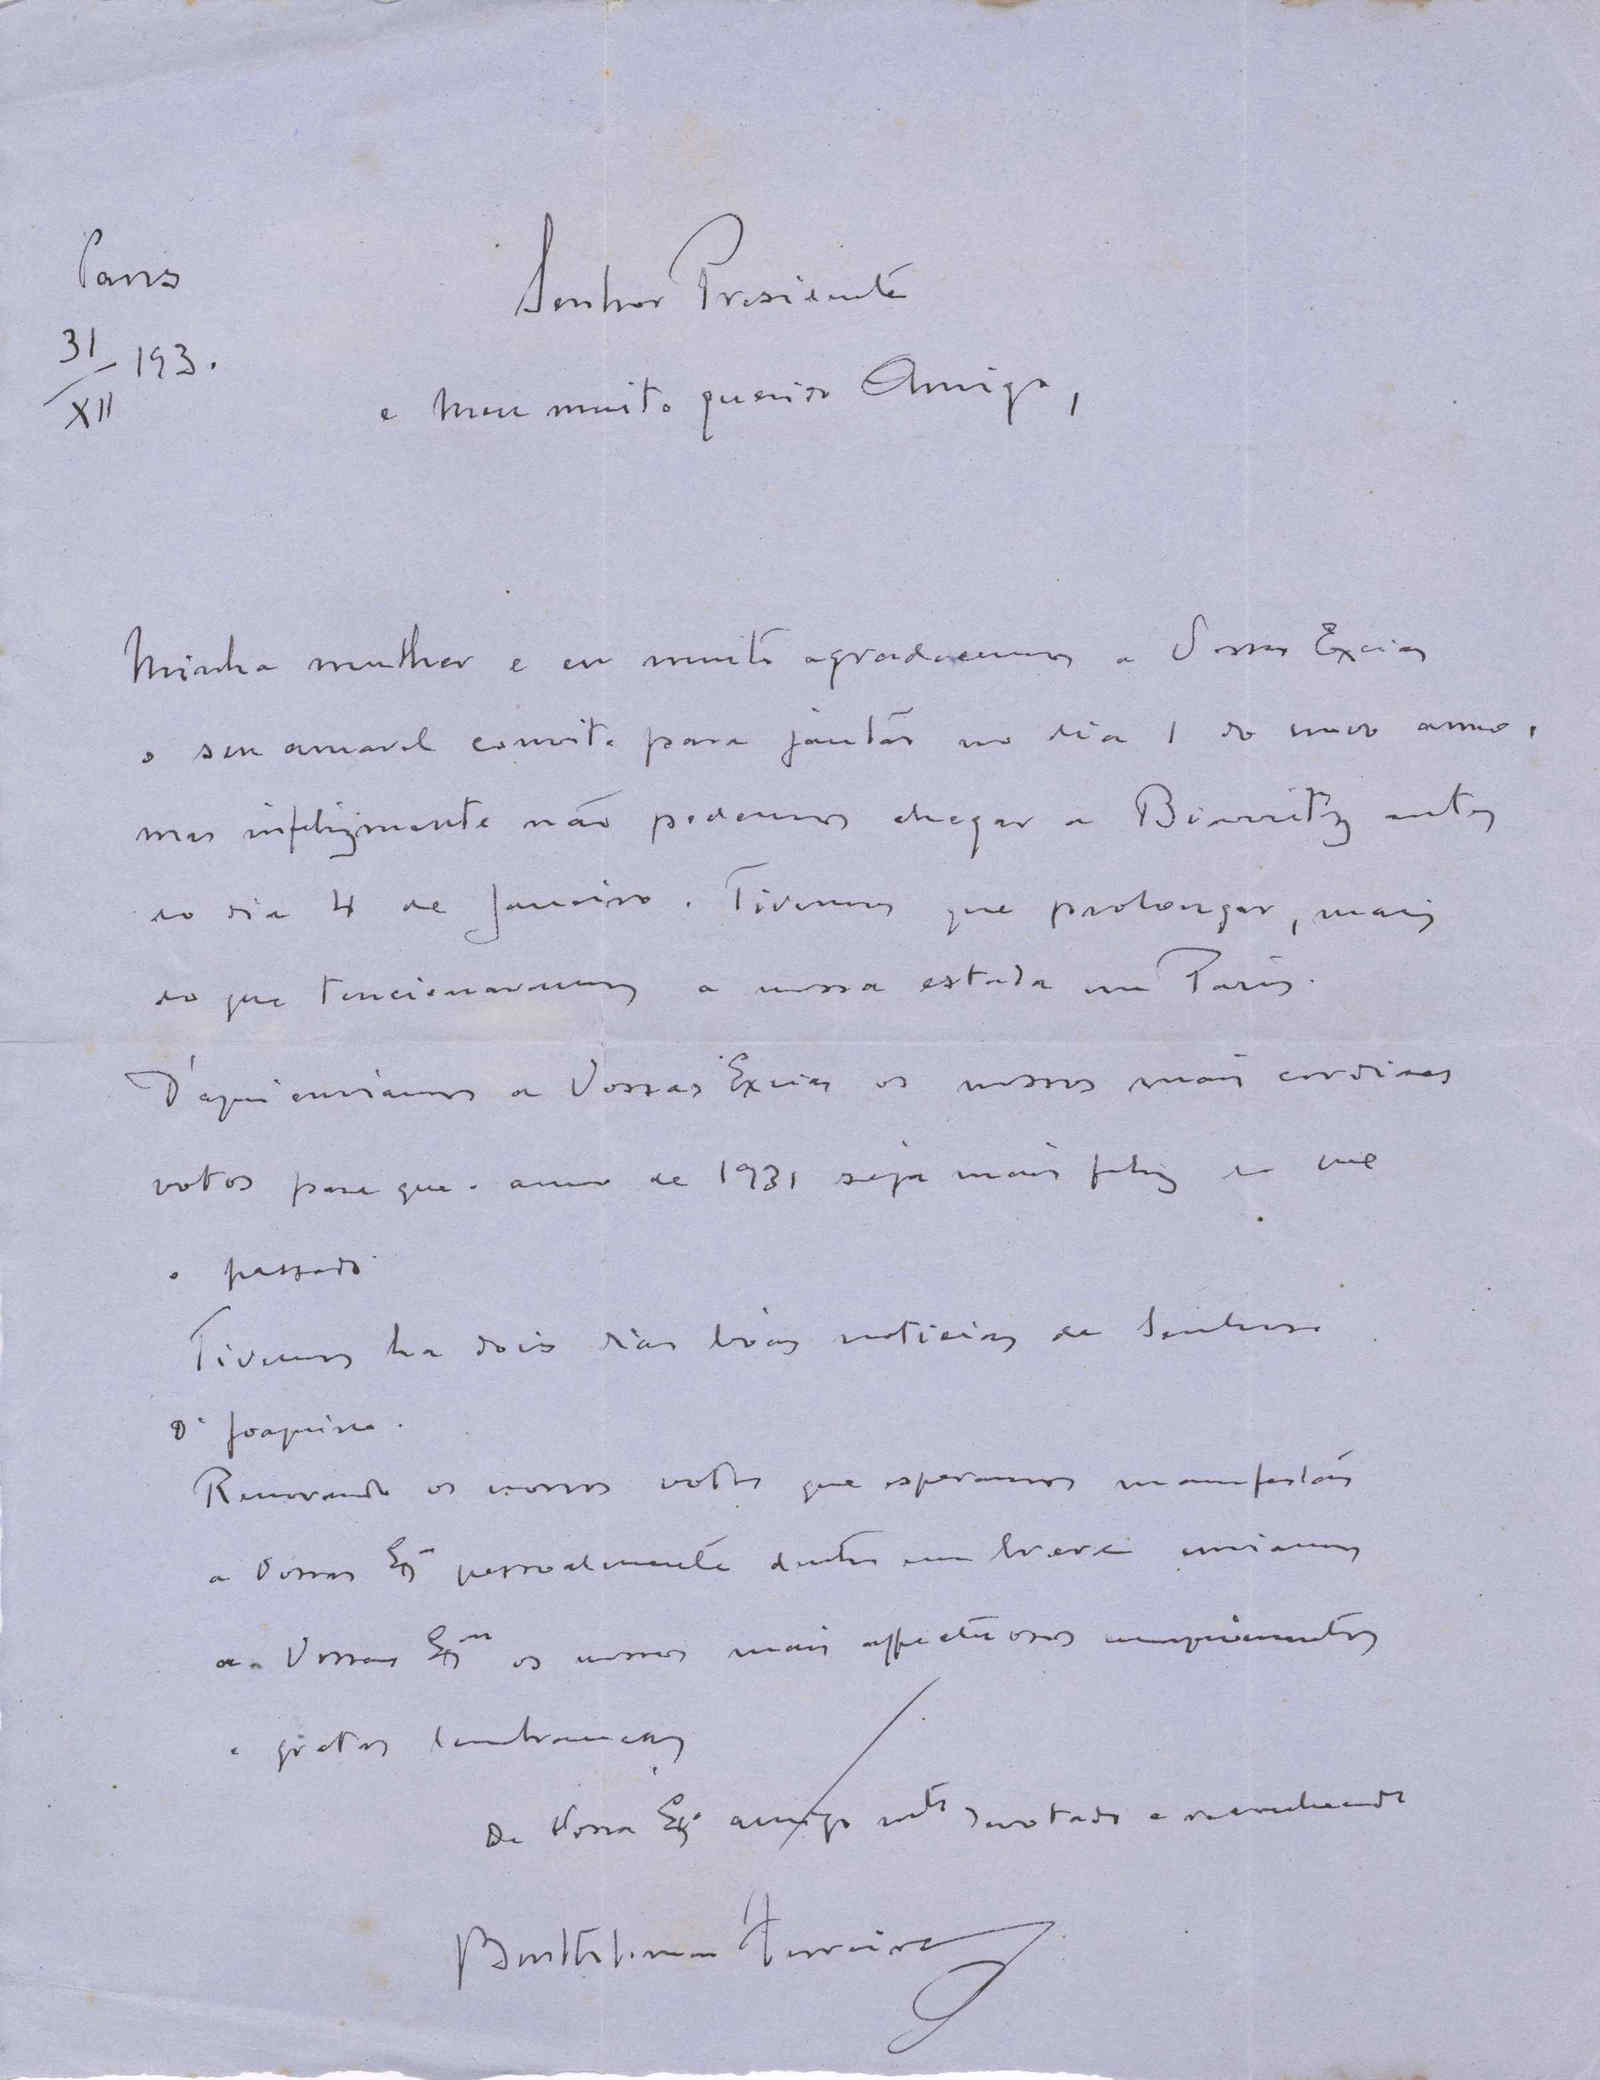 Paris
31/XII 193.
Senhor Presidente
e meu muito querido Amigo,
Minha mulher e eu muito agradecemos a Vossas Excias
o seu amavel convite para jantar no dia 1 do novo anno,
mas infelizmente não podemos chegar a Biarritz antes
do dia 4 de Janeiro. Tivemos que prolongar, mais
do que tencionavamos a nossa estada em Paris.
D'aqui enviamos a Vossas Excias os nossos mais cordiaes
votos para que o anno de 1931 seja mais feliz do que
o passado
Tivemos ha dois dias bôas noticias da Senhora
D. Joaquina.
Renovando os nossos votos que esperamos manifestar
a Vossas Exas pessoalmente dentro em breve enviamos
a Vossas Exas os nossos mais affectuosos cumprimentos
e gratas lembranças
De Vossa Exa amigo mto devotado e
Bartholomeu Ferreira